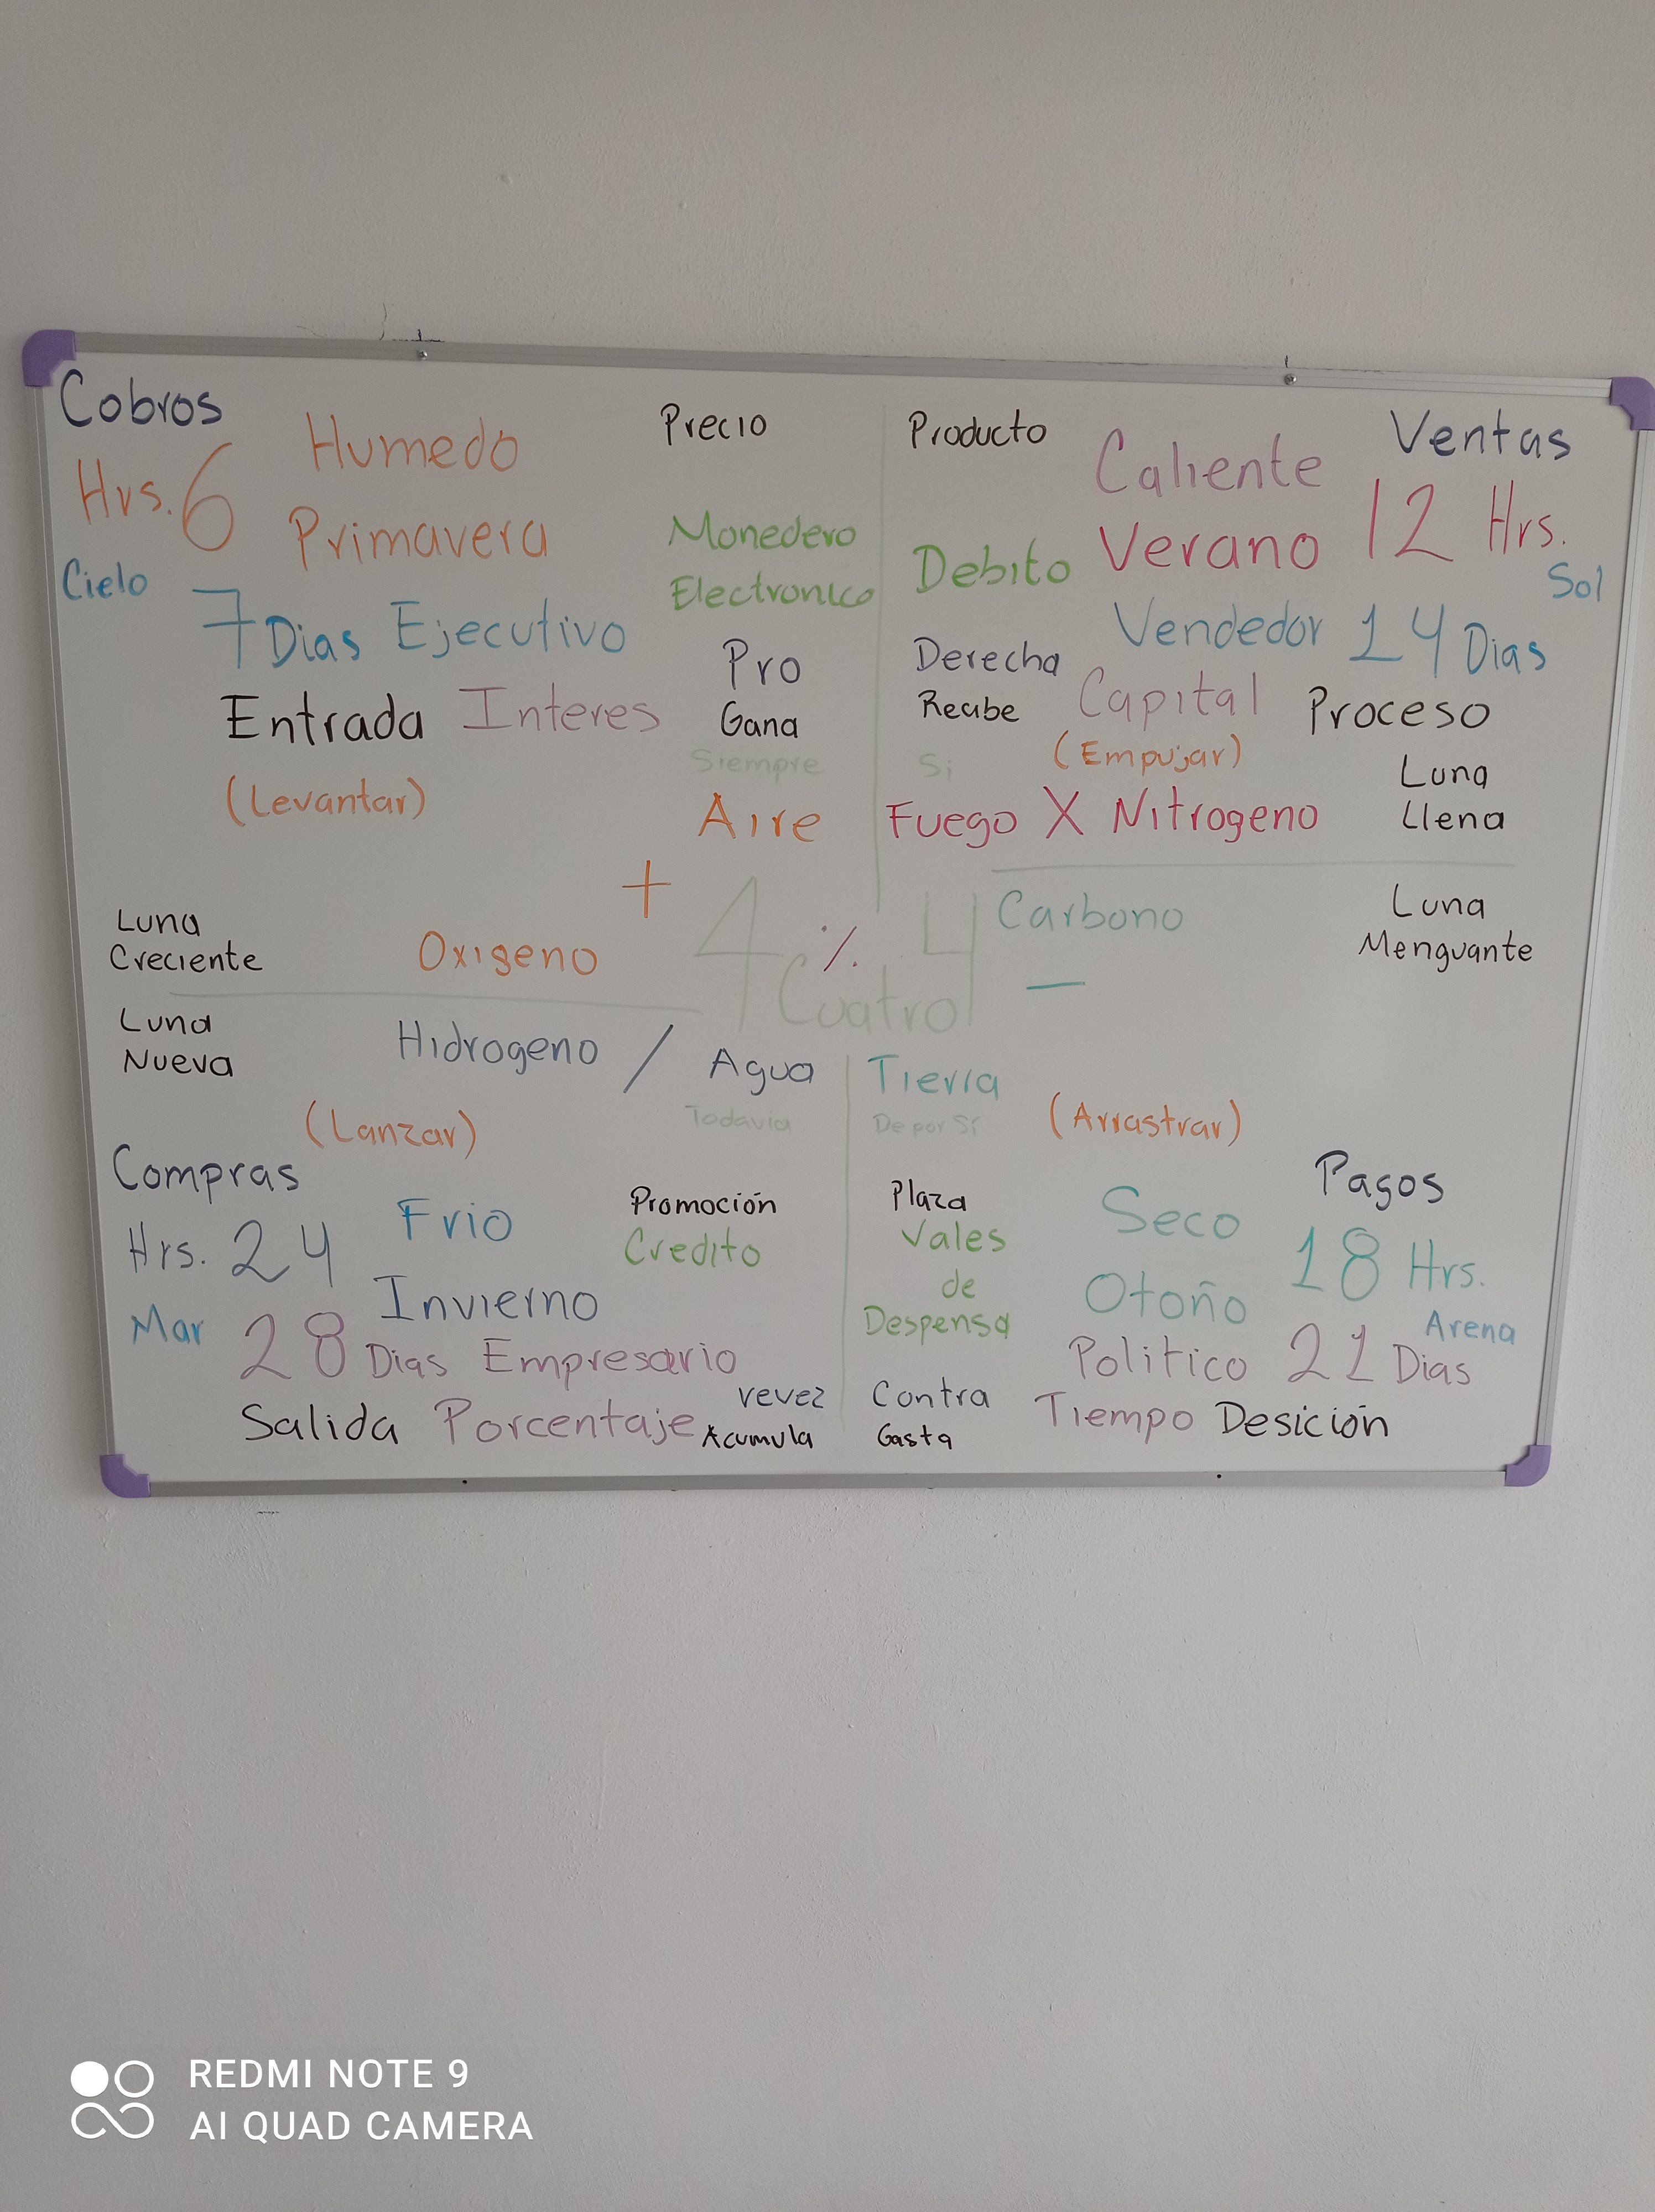 Cobros
Humedo
Precio
Hrs. 6
Primavera
Monedero
Electronico
Cielo
7 Dias Ejecutivo
Pro
Entrada Interes
Gana
Siempre
(Levantar)
Aire
+
Luna
Creciente
Oxigeno
Producto
Caliente
Ventas
Debito
Verano
12 Hrs.
Sol
Vendedor 14 Dias
Derecha
Recibe
Capital
Proceso
Si
(Empujar)
Luna
Llena
Fuego X Nitrogeno
4 % 4
Cuatro
Carbono
Luna
Menguante
—
Luna
Nueva
Hidrogeno / Agua
Todavia
(Lanzar)
Compras
Frio
Promoción
Credito
Hrs. 24
Invierno
Mar
28 Dias Empresario
revez
Salida Porcentaje
Acumula
Tierra
De por Sí
(Arrastrar)
Plaza
Seco
Pagos
Vales
de
Despensa
Otoño
18 Hrs.
Arena
Politico 21 Dias
Contra
Gasta
Tiempo Desición
REDMI NOTE 9
AI QUAD CAMERA